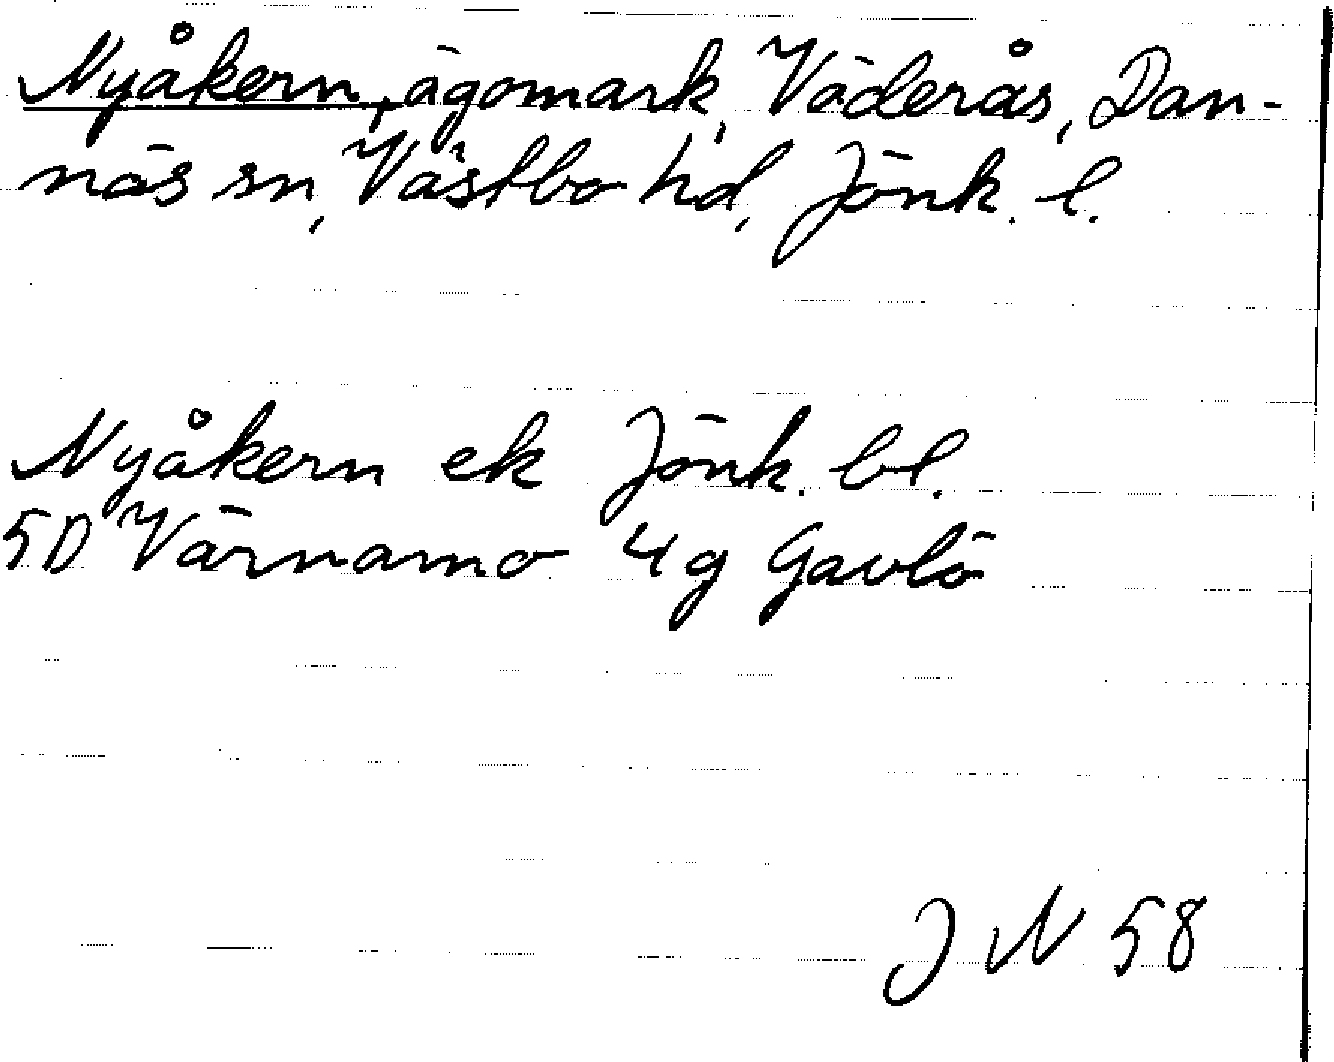 Nyåkern, ägomark, Väderås, Dan-
näs sn, Västbo hd, Jönk. l.
Nyåkern ek Jönk. bl.
5D Värnamo 4g Gavlö
J N 58